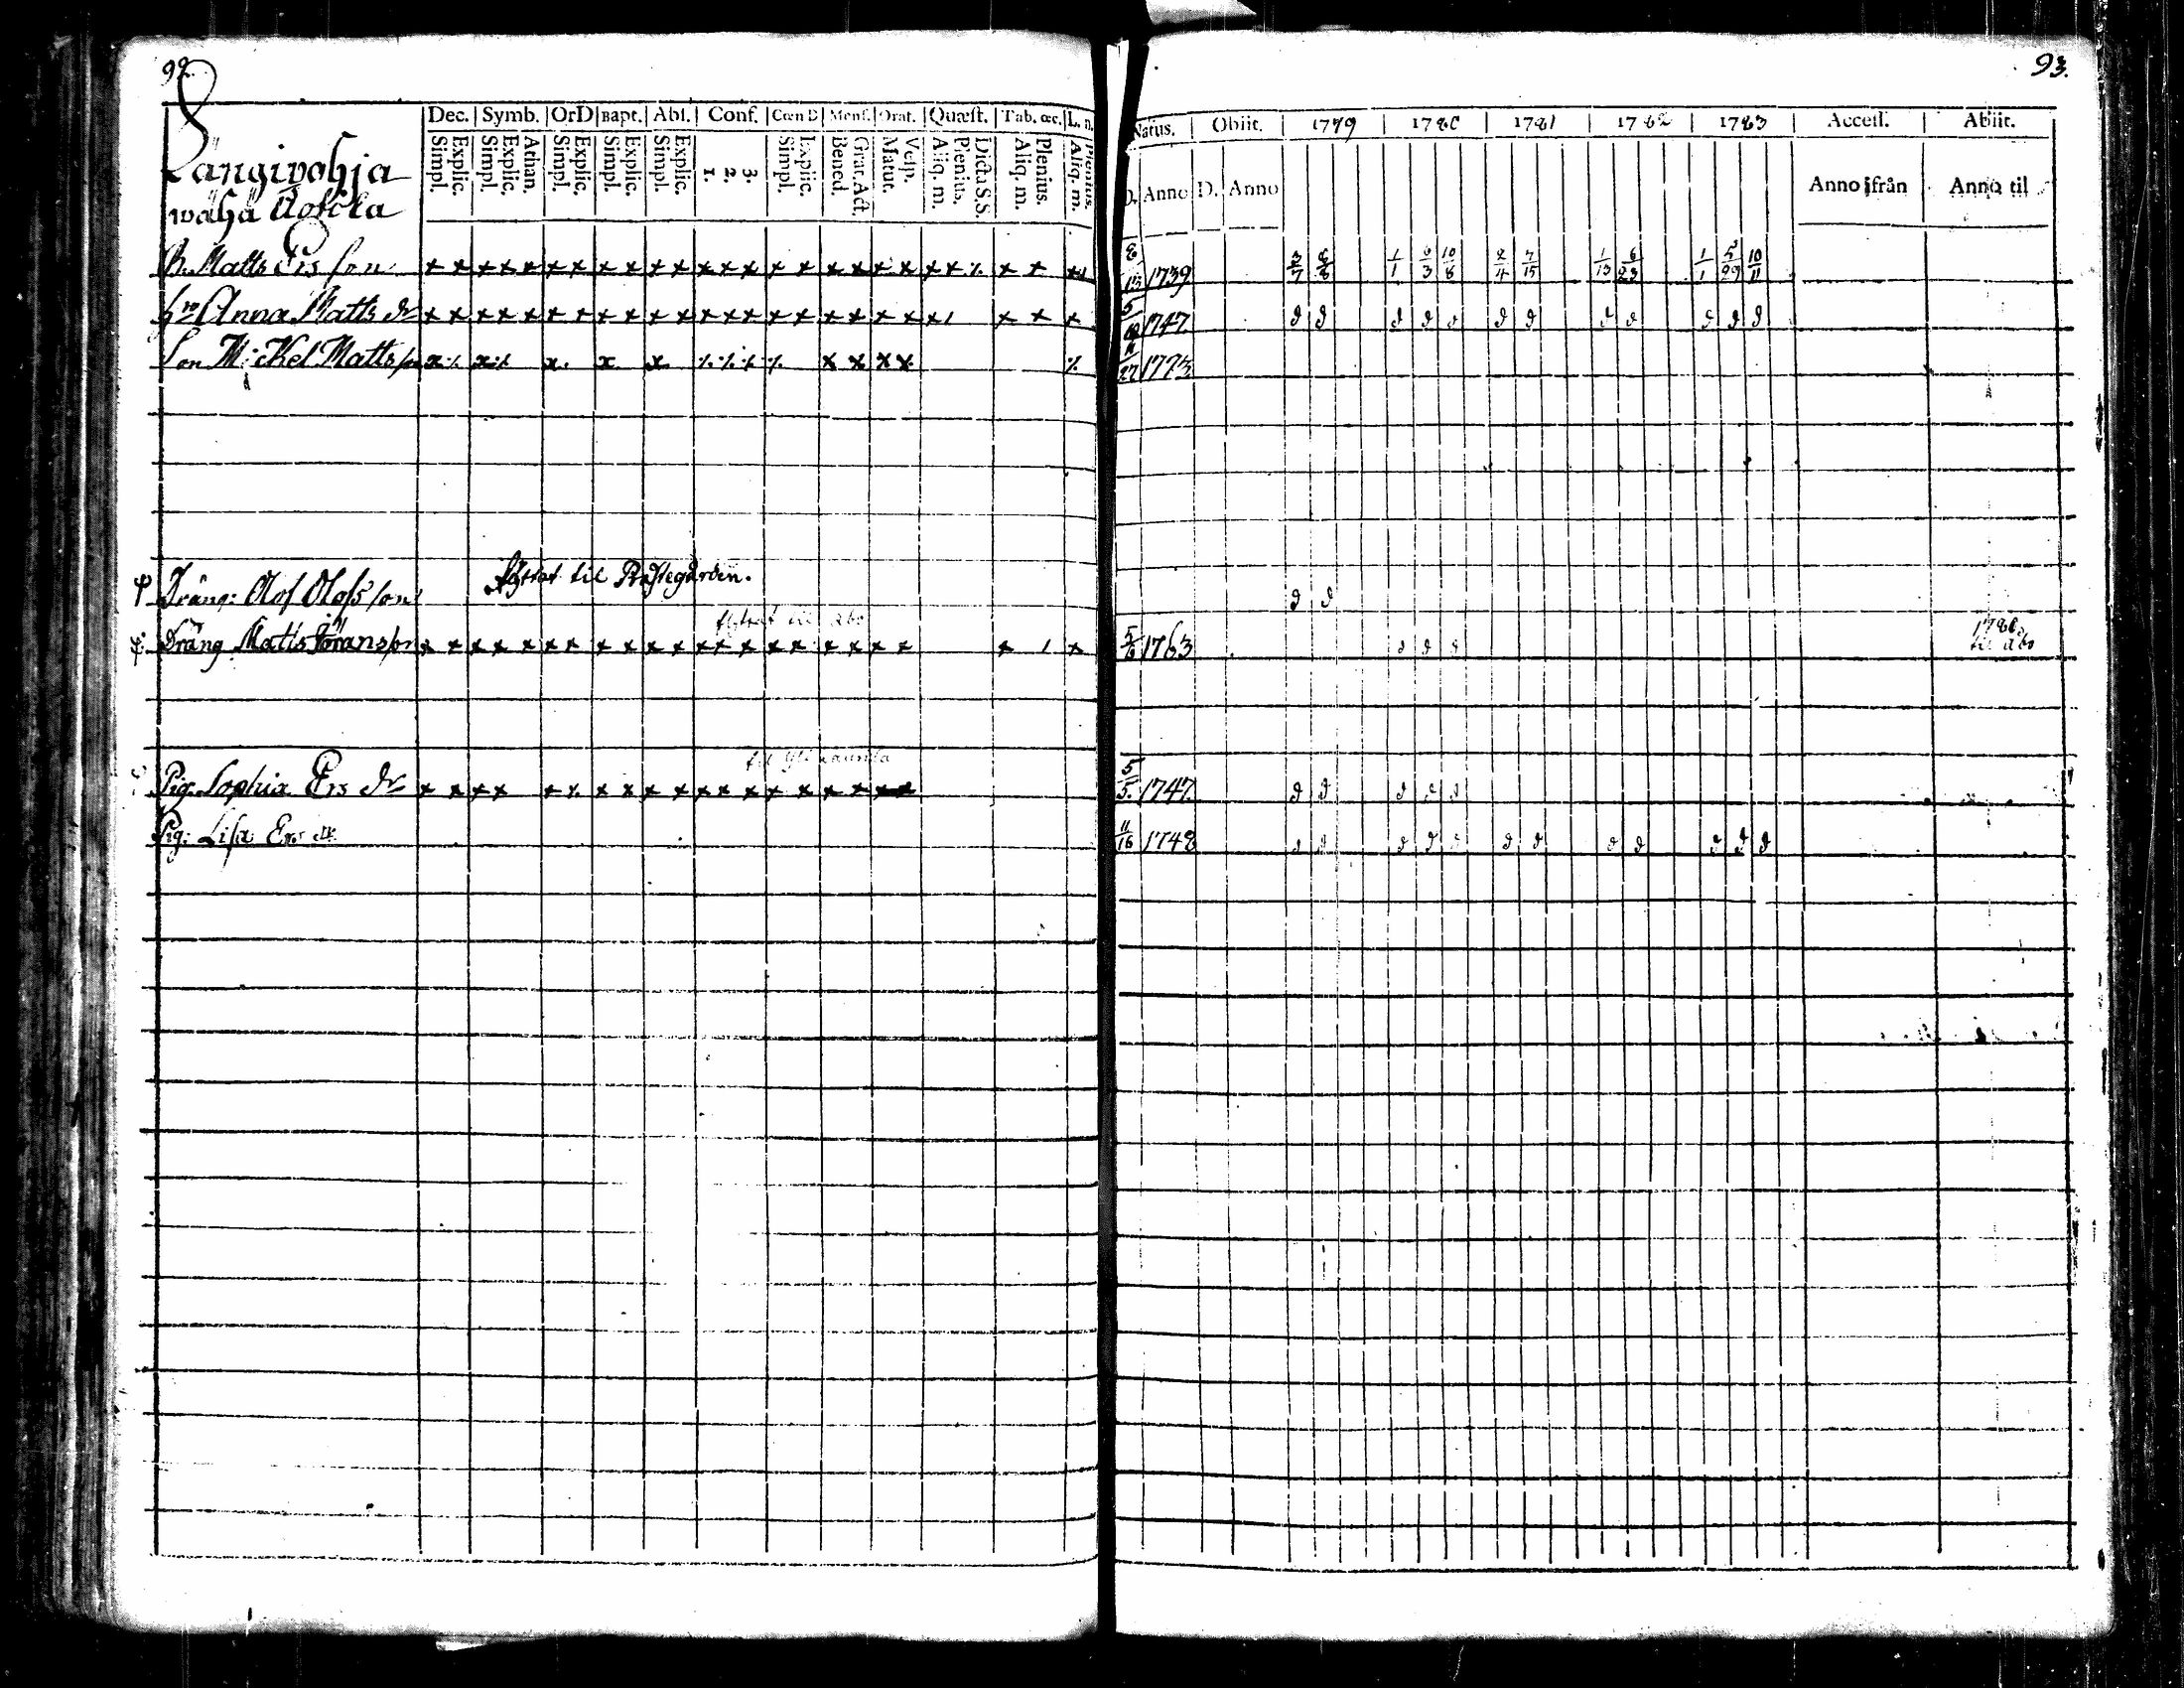 92.
Dec. Symb. OrD Bapt. Abſ. Conf. Cœn D Menſ. Orat. Quæſt. Tab. œc. L. n.
Simpl. Explic. Simpl. Explic. Athan. Simpl. Explic. Simpl. Explic. Simpl. Explic. 1. 2. 3. Simpl. Explic. Bened. Grat. Act. Matut. Veſp. Aliq. m. Plenius. Dicta S.S. Aliq. m. Plenius. Aliq. m. Plenius.
waha
B. Matts Ers ſon
Anna Matts dr
Son Mickel Matts ſon
flyttat til Præstegården.
Dräng: Olof Olofs ſon
flyttat til Åbo
Dräng Matts Jöransſon
til
Pig. Sophia Ers dr
Pig: Liſa Ers dr
93.
Natus. Obiit. 1779 1780 1781 1782 1783 Acceſſ. Abiit.
D. Anno D. Anno Anno ifrån Anno til
1739 1/1 1/13 6/23 1/1 5/29 10/11
1747 d d d d d d d d d d d d
27 1773
d d
1763 d d d 1780 til Åbo
5/5. 1747 d d d d d
11/16 1748 d d d d d d d d d d d d